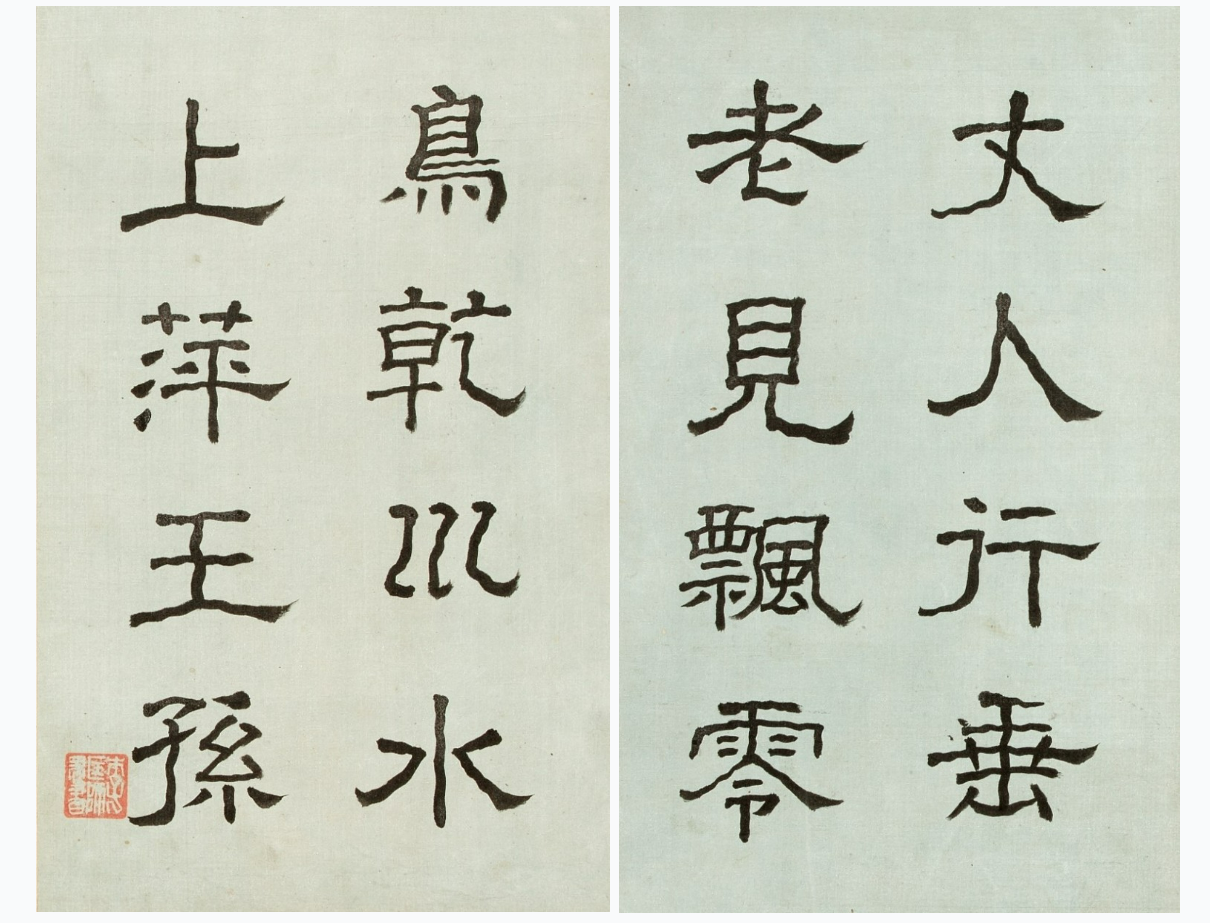 鳥乾巛水
上萍王孫
丈人行垂
老見飄零